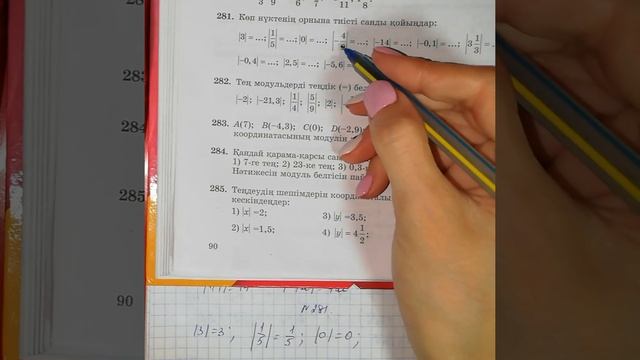 3 9 6 7 11 8
281. Көп нүктенің орнына тиісті санды қойыңдар:
|3| = ...; |1/5| = ...; |0| = ...; |-4/9| = ...; |-14| = ...; |-0,1| = ...; |3 1/3| =
|-0,4| = ...; |2,5| = ...; |-5,6| =
282. Тең модульдерді теңдік (=)
|-2|; |-21,3|; |1/4|; |5/9|; |2|;
283. A(7); B(-4,3); C(0); D(-2,9)
координатасының модулін
284. Қандай қарама-қарсы
1) 7-ге тең; 2) 23-ке тең; 3) 0,3-
Нәтижесін модуль белгісін
285. Теңдеудің шешімдерін
кескіндеңдер:
1) |x| = 2; 3) |y| = 3,5;
2) |x| = 1,5; 4) |y| = 4 1/2;
90
№281.
|3| = 3; |1/5| = 1/5; |0| = 0;
28
283
284
285
90